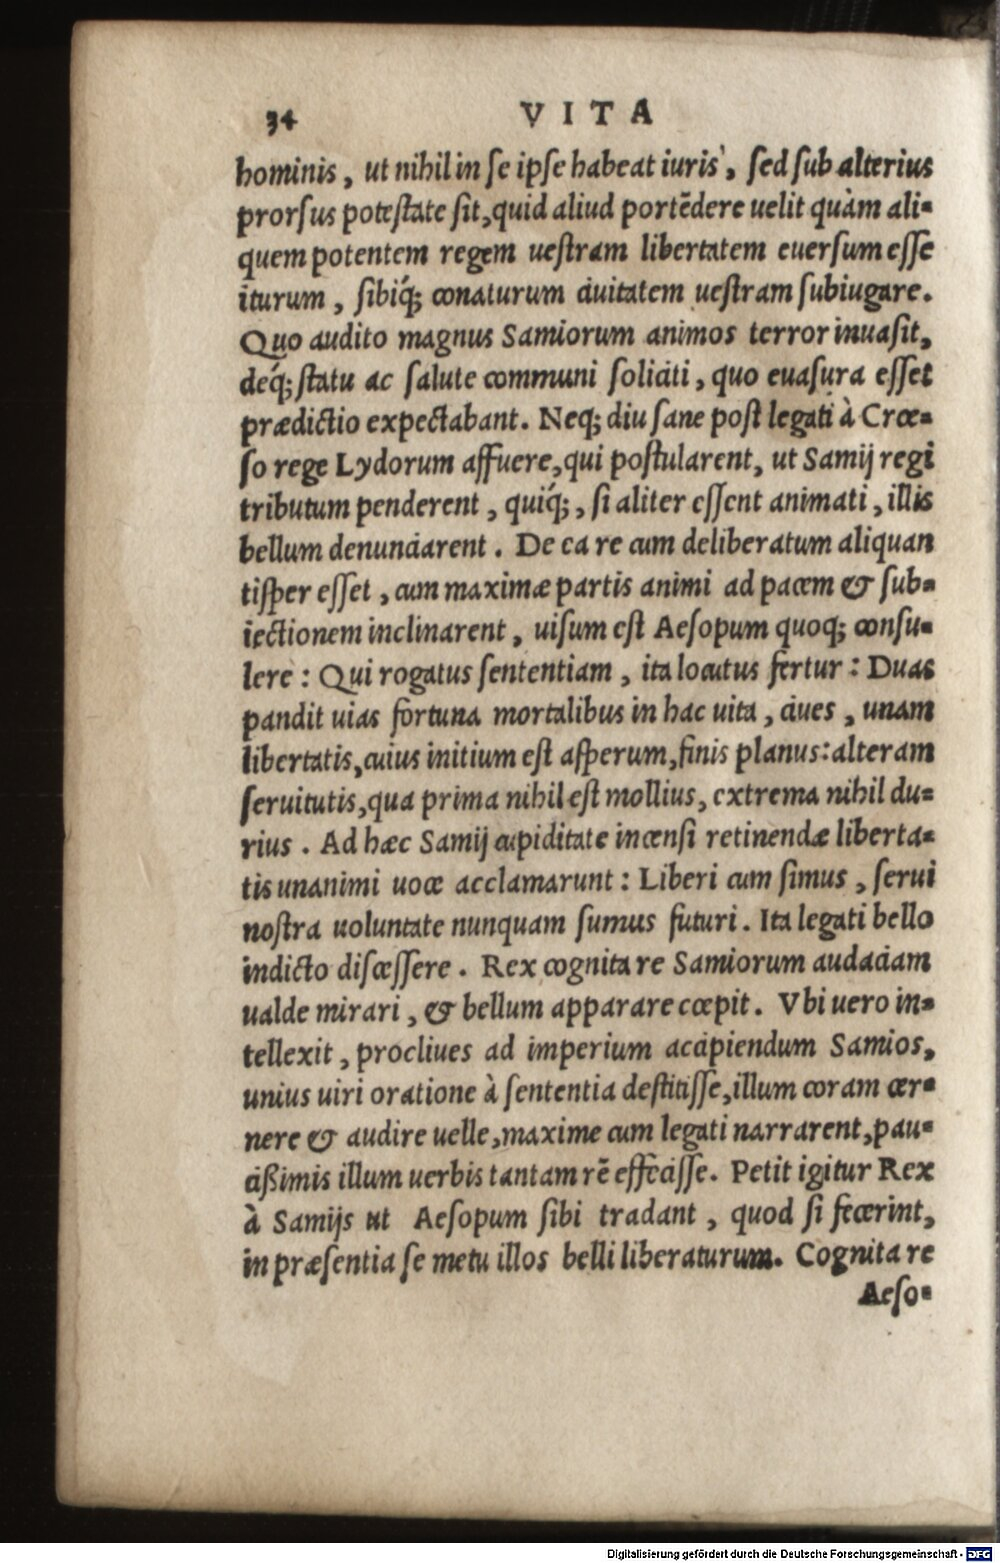 34 VITA
hominis, ut nihil in ſe ipſe habeat iuris, ſed ſub alterius
prorſus poteſtate ſit, quid aliud portẽdere uelit quàm ali-
quem potentem regem ueſtram libertatem euerſum eſſe
iturum, ſibiq́; conaturum ciuitatem ueſtram ſubiugare.
Quo audito magnus Samiorum animos terror inuaſit,
deq́; ſtatu ac ſalute communi ſoliciti, quo euaſura eſſet
prædictio expectabant. Neq; diu ſane poſt legati à Crœ-
ſo rege Lydorum affuere, qui poſtularent, ut Samij regi
tributum penderent, quiq́;, ſi aliter eſſent animati, illis
bellum denunciarent. De ea re cum deliberatum aliquan
tiſper eſſet, cum maximæ partis animi ad pacem & ſub-
iectionem inclinarent, uiſum eſt Aeſopum quoq; conſu-
lere: Qui rogatus ſententiam, ita locutus fertur: Duas
pandit uias fortuna mortalibus in hac uita, ciues, unam
libertatis, cuius initium eſt aſperum, finis planus: alteram
ſeruitutis, qua prima nihil eſt mollius, extrema nihil du-
rius. Ad hæc Samij cupiditate incenſi retinendæ liberta-
tis unanimi uoce acclamarunt: Liberi cum ſimus, ſerui
noſtra uoluntate nunquam ſumus futuri. Ita legati bello
indicto diſceſſere. Rex cognita re Samiorum audaciam
ualde mirari, & bellum apparare cœpit. Vbi uero in-
tellexit, procliues ad imperium accipiendum Samios,
unius uiri oratione à ſententia deſtitiſſe, illum coram cer-
nere & audire uelle, maxime cum legati narrarent, pau-
cißimis illum uerbis tantam rẽ effeciſſe. Petit igitur Rex
à Samijs ut Aeſopum ſibi tradant, quod ſi fecerint,
in præſentia ſe metu illos belli liberaturum. Cognita re
Aeſo-
Digitalisierung gefördert durch die Deutsche Forschungsgemeinschaft - DFG